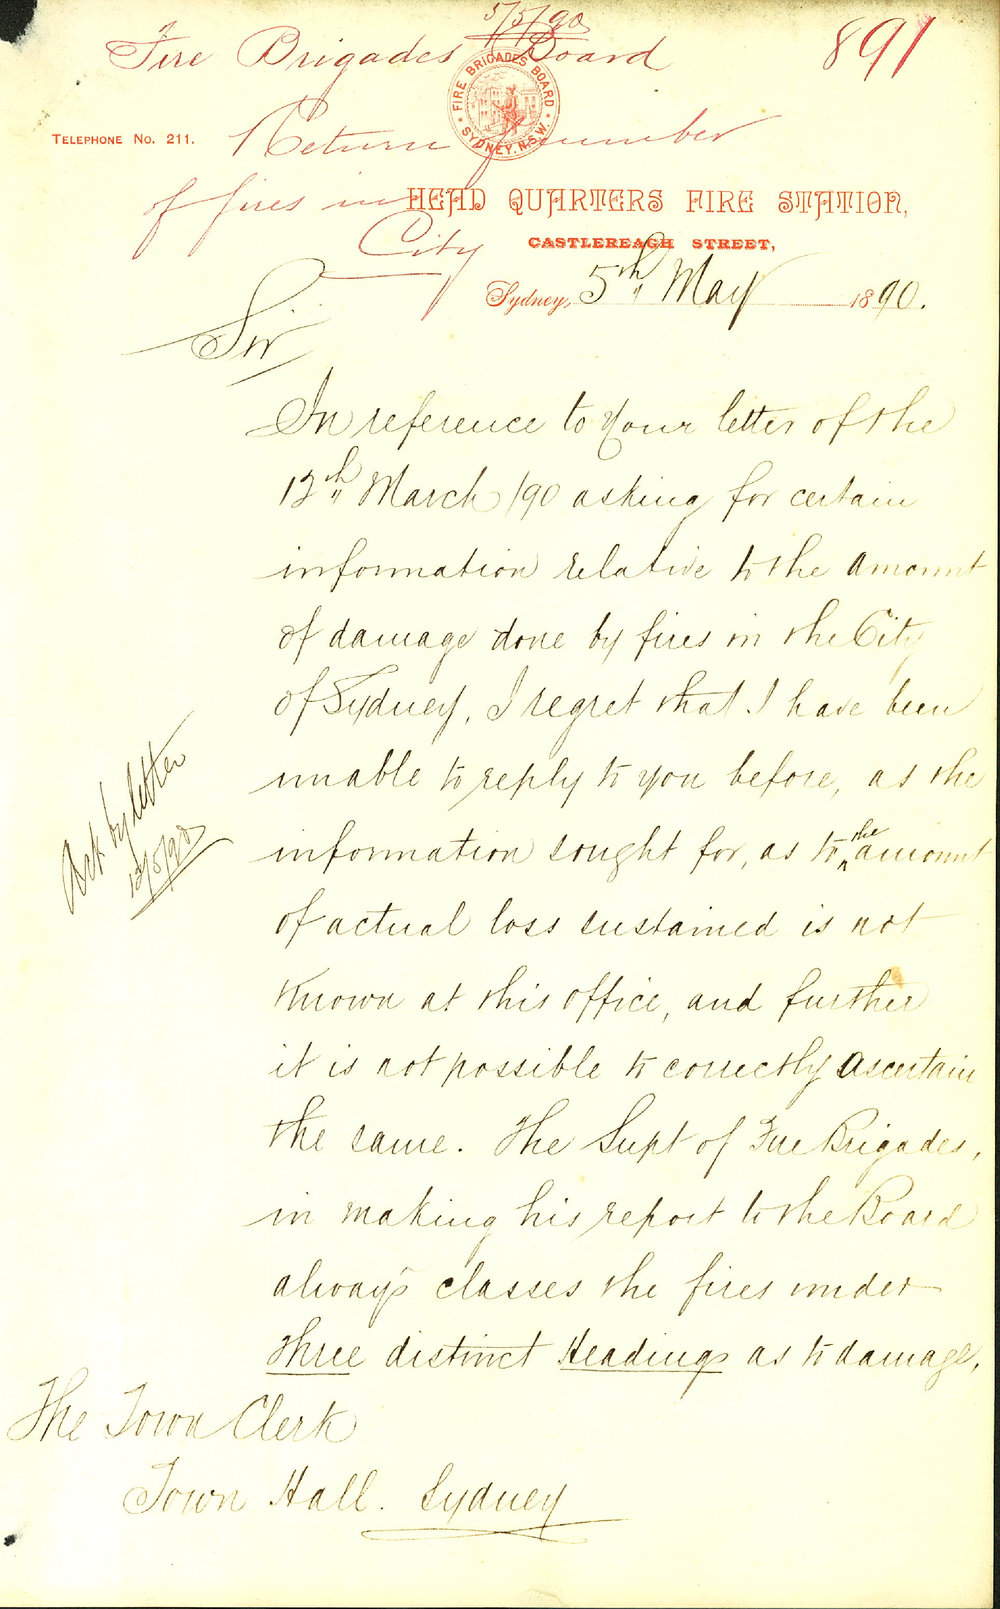 5/5/90
Fire Brigades Board
891
FIRE BRIGADES BOARD
SYDNEY. N.S.W.
TELEPHONE No. 211.
Return of number
of fires in
City
HEAD QUARTERS FIRE STATION,
CASTLEREAGH STREET,
Sydney, 5th May 1890.
Sir
In reference to Your letter of the
12th March /90 asking for certain
information relative to the amount
of damage done by fires in the City
of Sydney, I regret that I have been
unable to reply to you before, as the
information sought for, as to the amount
of actual loss sustained is not
known at this office, and further
it is not possible to correctly ascertain
the same. The Supt of Fire Brigades,
in making his report to the Board
always classes the fires under
three distinct Headings as to damage.
Ack by letter
12/5/90
The Town Clerk
Town Hall. Sydney